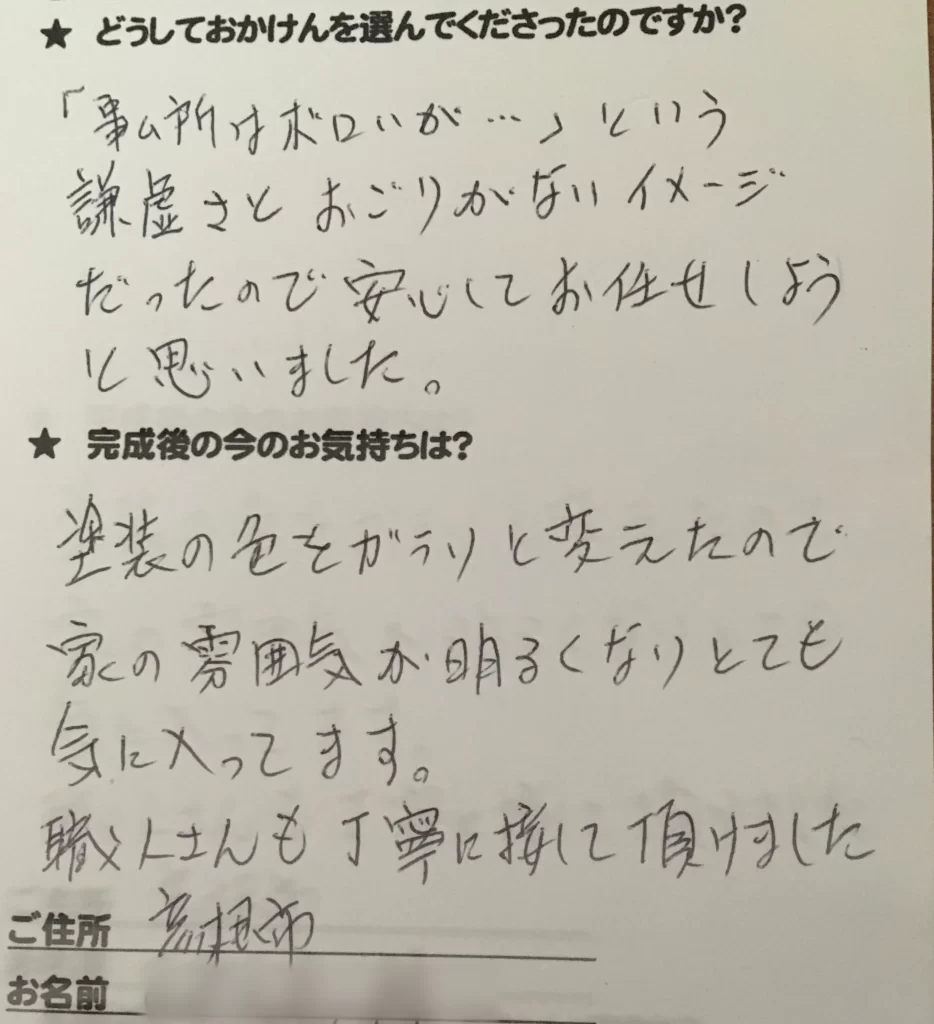 ★ どうしておかけんを選んでくださったのですか?
「事ム所はボロいが…」という
謙虚さと おごりがない イメージ
だったので 安心して お任せしよう
と思いました。
★ 完成後の今のお気持ちは?
塗装の色をガラリと変えたので
家の雰囲気が明るくなりとても
気に入ってます。
職人さんも丁寧に接して頂けました
ご住所 彦根市
お名前